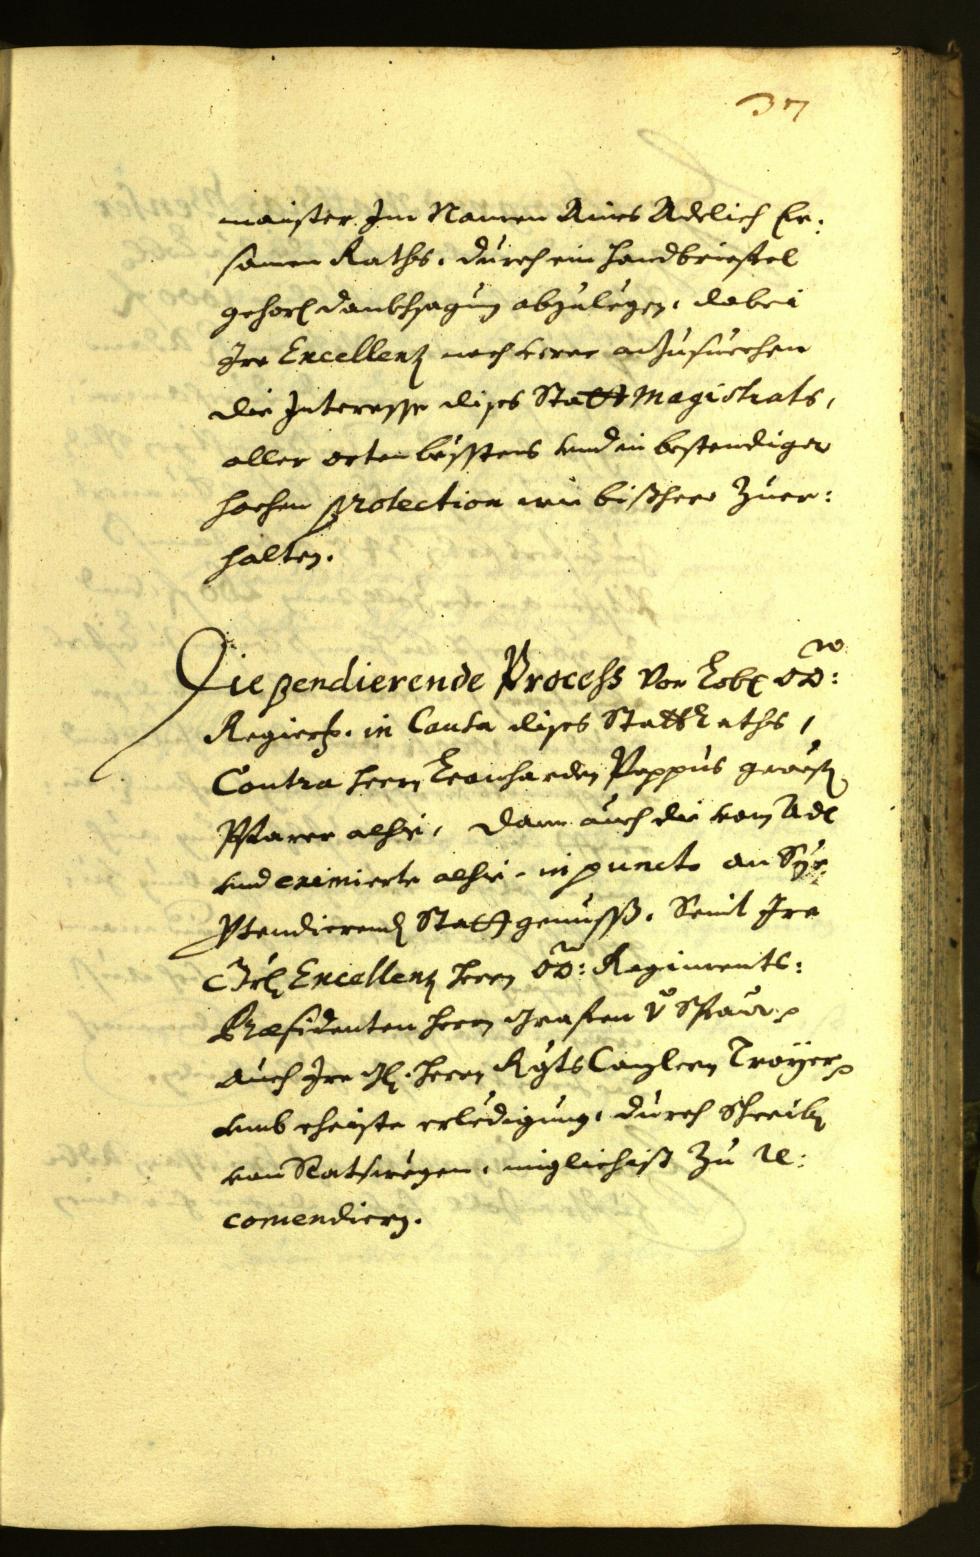 37
maister Im Namen Aines Adelich Er:
samen Raths, durch ein handbriefel
gehorß danckhsagung abzulegen, dabei
Ire Excellenz noch verer anzusuechen
die Interesse dises Statt Magistrats,
aller orten besstens vnd in bestendiger
hochen protection wie bißheer zuer:
halten.
Die pendierende Process vor Lobl: OÖ:
Regierg. in Causa dises Statt Raths,
Contra herrn Leonharden Pappus gewesten
Pfarrer alhie, dann auch die vom Adl
vnd eximierte alhie, in puncto an Sye
Ptendierenden Statt genuss. Seint Ire
Excellenz herrn OÖ: Regiments:
Præsidenten herrn Grafen v Spaur
auch Ire herrn Rgts Canzlern Troyer
vmb eheiste erledigung, durch Schreiben
von Ratswegen, miglichist zu Re:
comendiern.